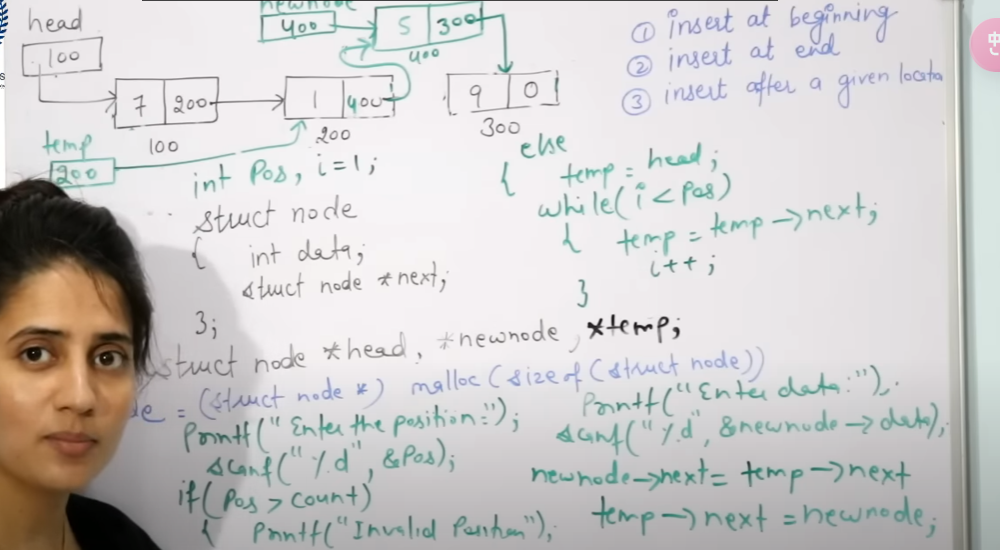 head
100
7 200
100
1 400
200
newnode
400
5 300
400
9 0
300
temp
200
① insert at beginning
② insert at end
③ insert after a given locatio
int Pos, i=1;
struct node
{ int data;
struct node *next;
};
struct node *head, *newnode, *temp;
de = (struct node *) malloc (sizeof (struct node))
Printf("Enter the position:");
scanf("%d", &Pos);
if( Pos > count)
{ Printf("Invalid Position");
else
{ temp = head;
while( i < pos)
{ temp = temp → next;
i++;
}
Printf("Enter data:");
scanf("%d", &newnode → data);
newnode→next = temp→next
temp → next = newnode;